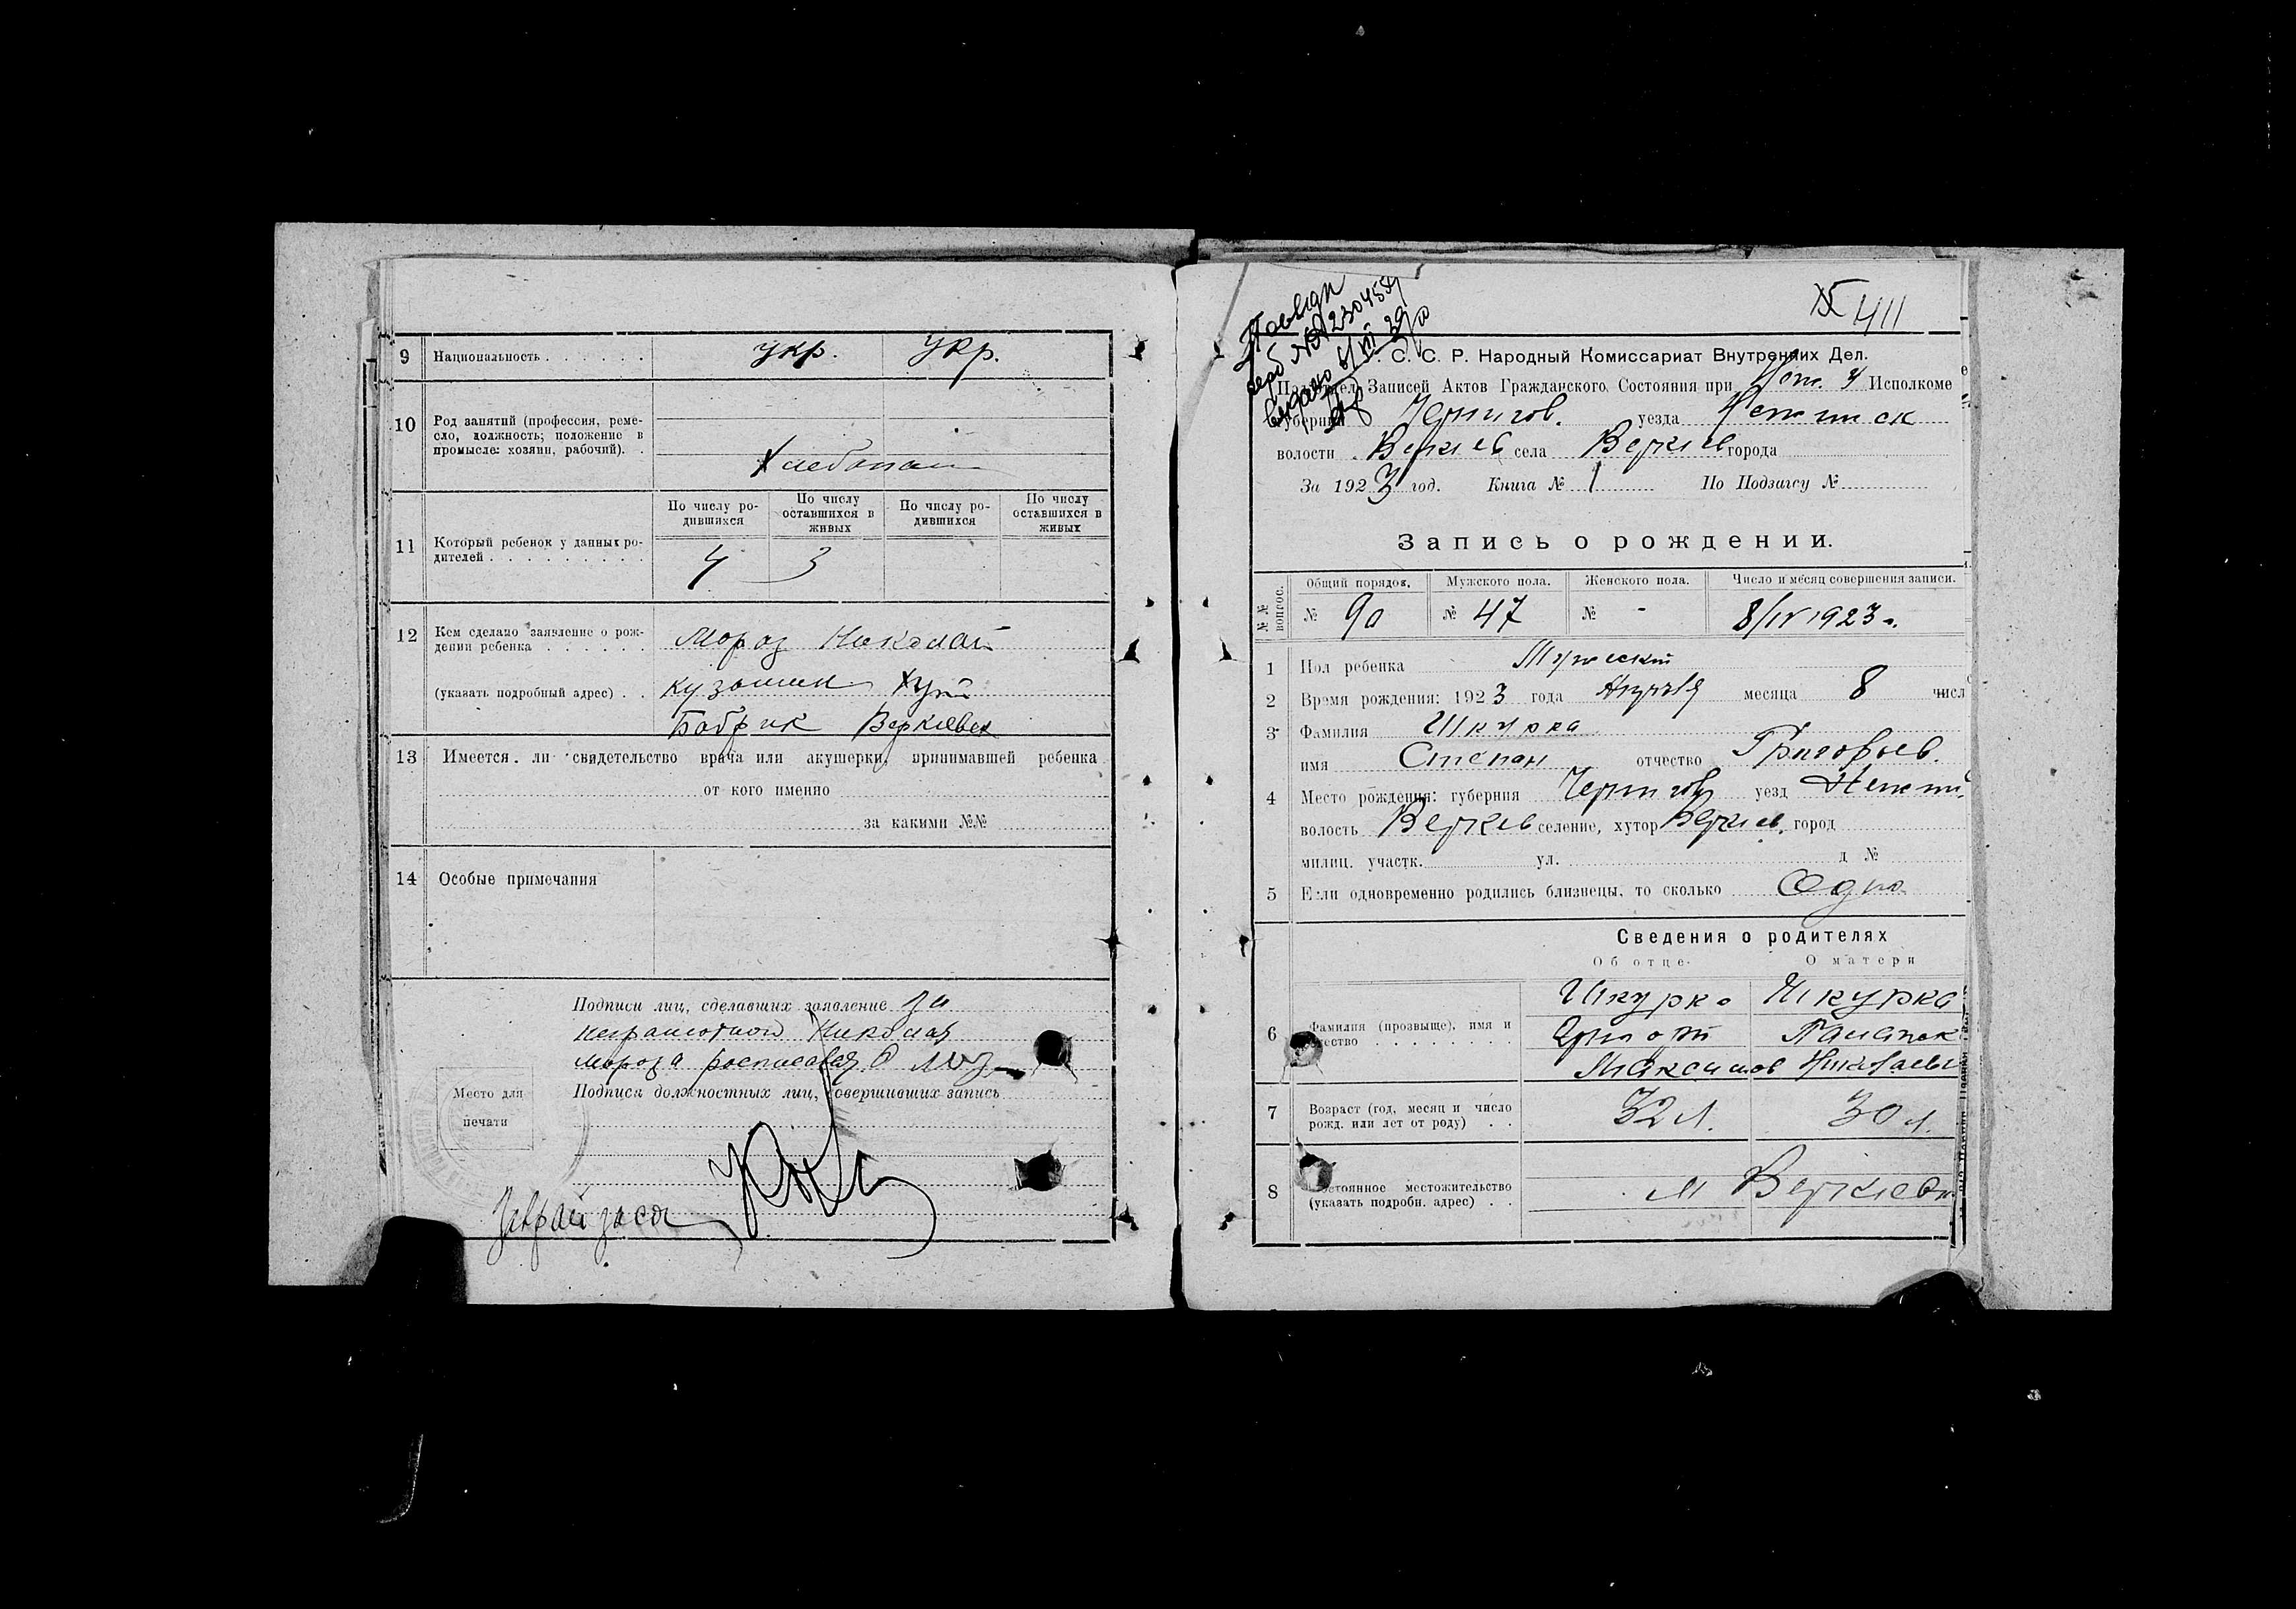 9 Национальность . . . . . . укр. Укр.
10 Род занятий (профессия, реме-
сло, должность; положение в
промысле: хозяин, рабочий). .
Хлебопаш
По числу ро-
дившихся
По числу
оставшихся в
живых
По числу ро-
дившихся
По числу
оставшихся в
живых
11 Который ребенок у данных ро-
дителей . . . . . . . . . 4 3
12 Кем сделано заявление о рож-
дении ребенка . . . . . . Мороз Николай
(указать подробный адрес) . . Хут
Бобрик Веркиевск
13 Имеется ли свидетельство врача или акушерки, принимавшей ребенка
от кого именно
за какими №№
14 Особые примечания
Подписи лиц, сделавших заявление за
неграмотной Николая
Мороза росписался
Подписи должностных лиц, совершивших запись
Место для
печати
411
С. С. Р. Народный Комиссариат Внутренних Дел.
Записей Актов Гражданского Состояния при Исполкоме
Чернигов. уезда
волости Веркиев села Веркиев города
За 1923 год. Книга № 1 По Подзагсу №
Запись о рождении.
№№ вопрос.
Общий порядов. Мужского пола. Женского пола. Число и месяц совершения записи.
№ 90 № 47 № - 8/IV 1923 г.
1 Пол ребенка Мужский
2 Время рождения: 1923 года Апреля месяца 8 числ
3 Фамилия Шкурка
имя Степан отчество Григорьев.
4 Место рождения: губерния Чернигов уезд Нежин.
волость Веркиев селение, хутор Веркиев. город
милиц. участк. ул. д №
5 Если одновременно родились близнецы, то сколько Одно
Сведения о родителях
Об отце. О матери
6 Фамилия (прозвище), имя и
отчество . . . . . . . .
Шкурко Шкурка
Максимов
7 Возраст (год, месяц и число
рожд. или лет от роду) . . 32 л. 30 л.
8 Постоянное местожительство
(указать подробн. адрес) . . м Веркиевк